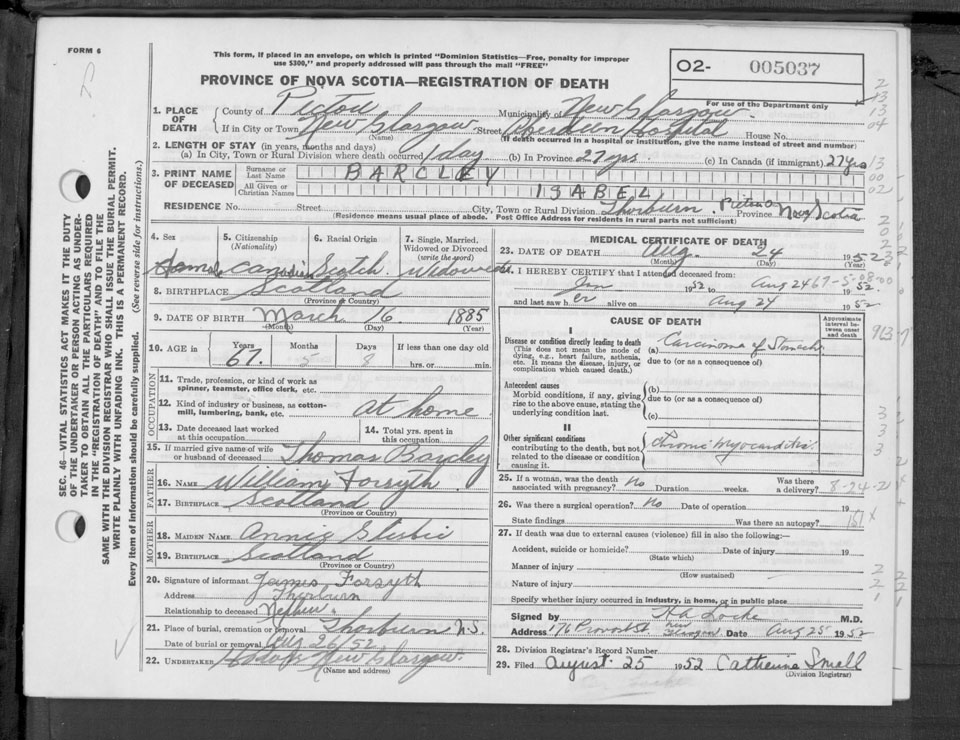 FORM 6
This form, if placed in an envelope, on which is printed "Dominion Statistics—Free, penalty for improper
use $300," and properly addressed will pass through the mail "FREE"
PROVINCE OF NOVA SCOTIA—REGISTRATION OF DEATH
O2- 005037
For use of the Department only
1. PLACE OF DEATH
County of Pictou Municipality of New Glasgow
If in City or Town New Glasgow Street Aberdeen Hospital House No.
(Name) (If death occurred in a hospital or institution, give the name instead of street and number)
2. LENGTH OF STAY (in years, months and days)
(a) In City, Town or Rural Division where death occurred 1 day (b) In Province 27 yrs. (c) In Canada (if immigrant) 27 yrs
3. PRINT NAME OF DECEASED
Surname or Last Name BARCLEY
All Given or Christian Names ISABEL
RESIDENCE No. Street City, Town or Rural Division Thorburn Pictou Co Province Nova Scotia
(Residence means usual place of abode. Post Office Address for residents in rural parts not sufficient)
4. Sex 5. Citizenship (Nationality) 6. Racial Origin 7. Single, Married, Widowed or Divorced (write the word)
Scotch Widowed
8. BIRTHPLACE Scotland
(Province or Country)
9. DATE OF BIRTH March 16 1885
(Month) (Day) (Year)
10. AGE in Years Months Days If less than one day old
67 5 8 hrs. or min.
OCCUPATION
11. Trade, profession, or kind of work as spinner, teamster, office clerk, etc.
12. Kind of industry or business, as cotton-mill, lumbering, bank, etc. at home
13. Date deceased last worked at this occupation 14. Total yrs. spent in this occupation
15. If married give name of wife or husband of deceased Thomas Barcley
FATHER
16. NAME William Forsyth
17. BIRTHPLACE Scotland
(Province or Country)
MOTHER
18. MAIDEN NAME Annie
19. BIRTHPLACE Scotland
(Province or Country)
20. Signature of informant James Forsyth
Address Thorburn
Relationship to deceased Nephew
21. Place of burial, cremation or removal Thorburn N.S.
Date of burial or removal Aug 26/52
22. UNDERTAKER New Glasgow
(Name and address)
MEDICAL CERTIFICATE OF DEATH
23. DATE OF DEATH Aug. 24 1952
(Month) (Day) (Year)
24. I HEREBY CERTIFY that I attended deceased from:
Jan 1952 to Aug 24 1952
67-5-08-00
and last saw her alive on Aug 24 1952
CAUSE OF DEATH
Approximate interval between onset and death
I
Disease or condition directly leading to death
(This does not mean the mode of dying, e.g., heart failure, asthenia, etc. It means the disease, injury, or complication which caused death.)
(a) Carcinoma of Stomach
due to (or as a consequence of)
Antecedent causes
Morbid conditions, if any, giving rise to the above cause, stating the underlying condition last.
(b)
due to (or as a consequence of)
(c)
II
Other significant conditions contributing to the death, but not related to the disease or condition causing it.
Chronic Myocarditis
25. If a woman, was the death associated with pregnancy? No Duration weeks. Was there a delivery?
8-24-2
26. Was there a surgical operation? No Date of operation 19
State findings Was there an autopsy?
27. If death was due to external causes (violence) fill in also the following:—
Accident, suicide or homicide? Date of injury 19
(State which)
Manner of injury
(How sustained)
Nature of injury
Specify whether injury occurred in industry, in home, or in public place
Signed by H.A. Locke M.D.
Address 176 Provost St. New Glasgow Date Aug 25 1952
28. Division Registrar's Record Number
29. Filed August 25 1952 Catherine Small
(Division Registrar)
SEC. 46—VITAL STATISTICS ACT MAKES IT THE DUTY
OF THE UNDERTAKER OR PERSON ACTING AS UNDER-
TAKER TO OBTAIN ALL THE PARTICULARS REQUIRED
IN THE "REGISTRATION OF DEATH" AND TO FILE THE
SAME WITH THE DIVISION REGISTRAR WHO SHALL ISSUE THE BURIAL PERMIT.
WRITE PLAINLY WITH UNFADING INK. THIS IS A PERMANENT RECORD.
Every item of information should be carefully supplied. (See reverse side for instructions.)